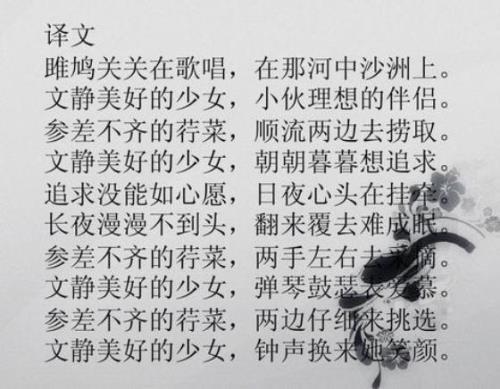 译文
雎鸠关关在歌唱，在那河中沙洲上。
文静美好的少女，小伙理想的伴侣。
参差不齐的荇菜，顺流两边去捞取。
文静美好的少女，朝朝暮暮想追求。
追求没能如心愿，日夜心头在挂牵。
长夜漫漫不到头，翻来覆去难成眠。
参差不齐的荇菜，两手左右去采摘。
文静美好的少女，弹琴鼓瑟表爱慕。
参差不齐的荇菜，两边仔细来挑选。
文静美好的少女，钟声换来她笑颜。